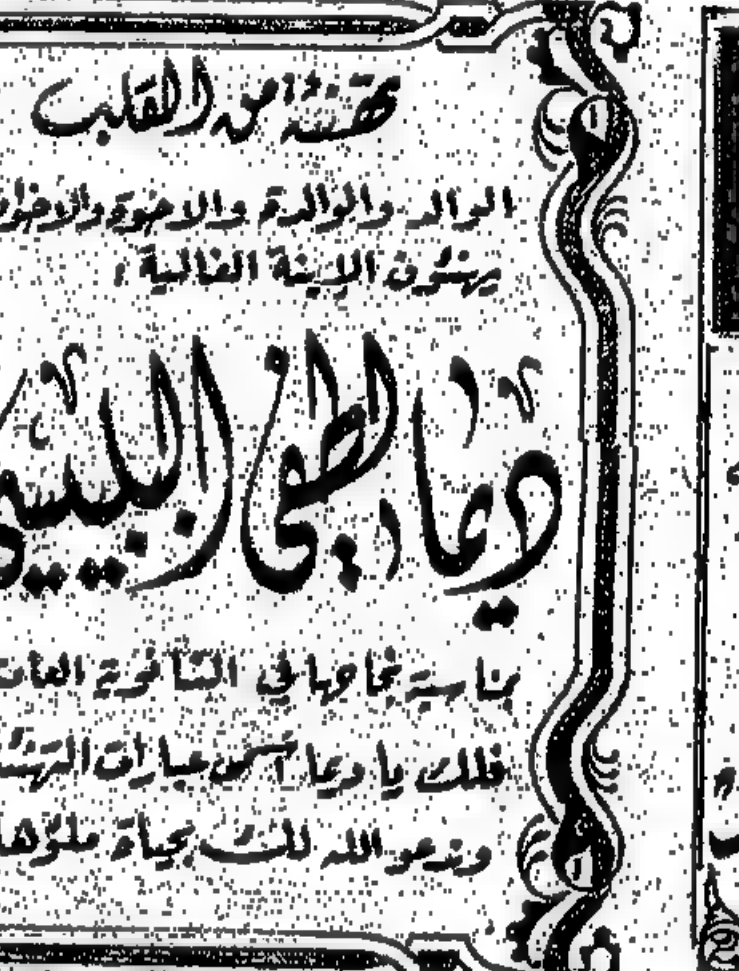 تهنئة من القلب
الوالد والوالدة والاخوة والاخوا
يهنئون الإبنة الغالية :
ديما لطفي البلبيسي
بمناسبة نجاحها في الثانوية العامة
فلك يا ديما اسمى عبارات التهنئ
وندعو الله لك بحياة ملؤها